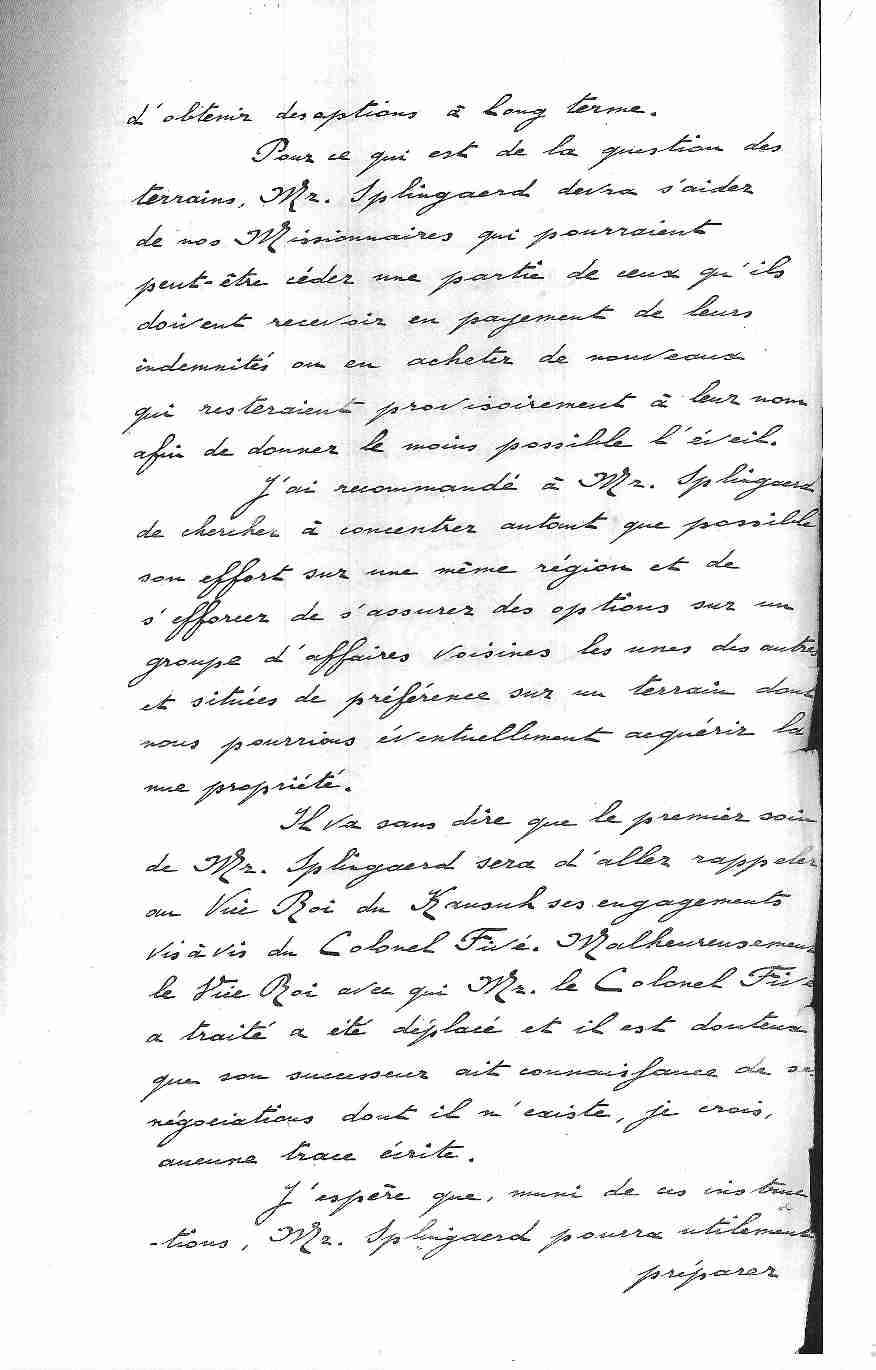 d'obtenir des options à long terme.
Pour ce qui est de la question des
terrains, Mr. Splingaerd devra s'aider
de nos Missionnaires qui pourraient
peut-être céder une partie de ceux qu'ils
doivent recevoir en payement de leurs
indemnités ou en acheter de nouveaux
qui resteraient provisoirement à leur nom
afin de donner le moins possible l'éveil.
J'ai recommandé à Mr. Splingaerd
de chercher à concentrer autant que possible
son effort sur une même région et de
s'efforcer de s'assurer des options sur un
groupe d'affaires voisines les unes des autres
et situées de préférence sur un terrain dont
nous pourrions éventuellement acquérir la
nue propriété.
Il va sans dire que le premier soin
de Mr. Splingaerd sera d'aller rappeler
au Vice Roi du Kansuh ses engagements
vis à vis du Colonel Fivé. Malheureusement
le Vice Roi avec qui Mr. le Colonel Fivé
a traité a été déplacé et il est douteux
que son successeur ait connaissance de
négociations dont il n'existe, je crois,
aucune trace écrite.
J'espère que, muni de ces instruc
-tions, Mr. Splingaerd pourra utilement
préparer